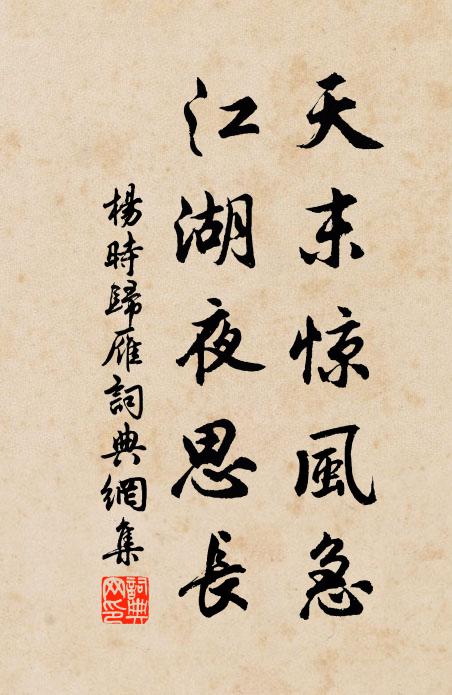 天末惊風急
江湖夜思長
楊時歸雁詞典網集
詞典
网印